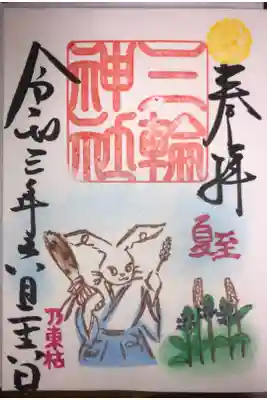 奉拝
夏至
三輪
神社
乃東枯
令和三年六月二十六日